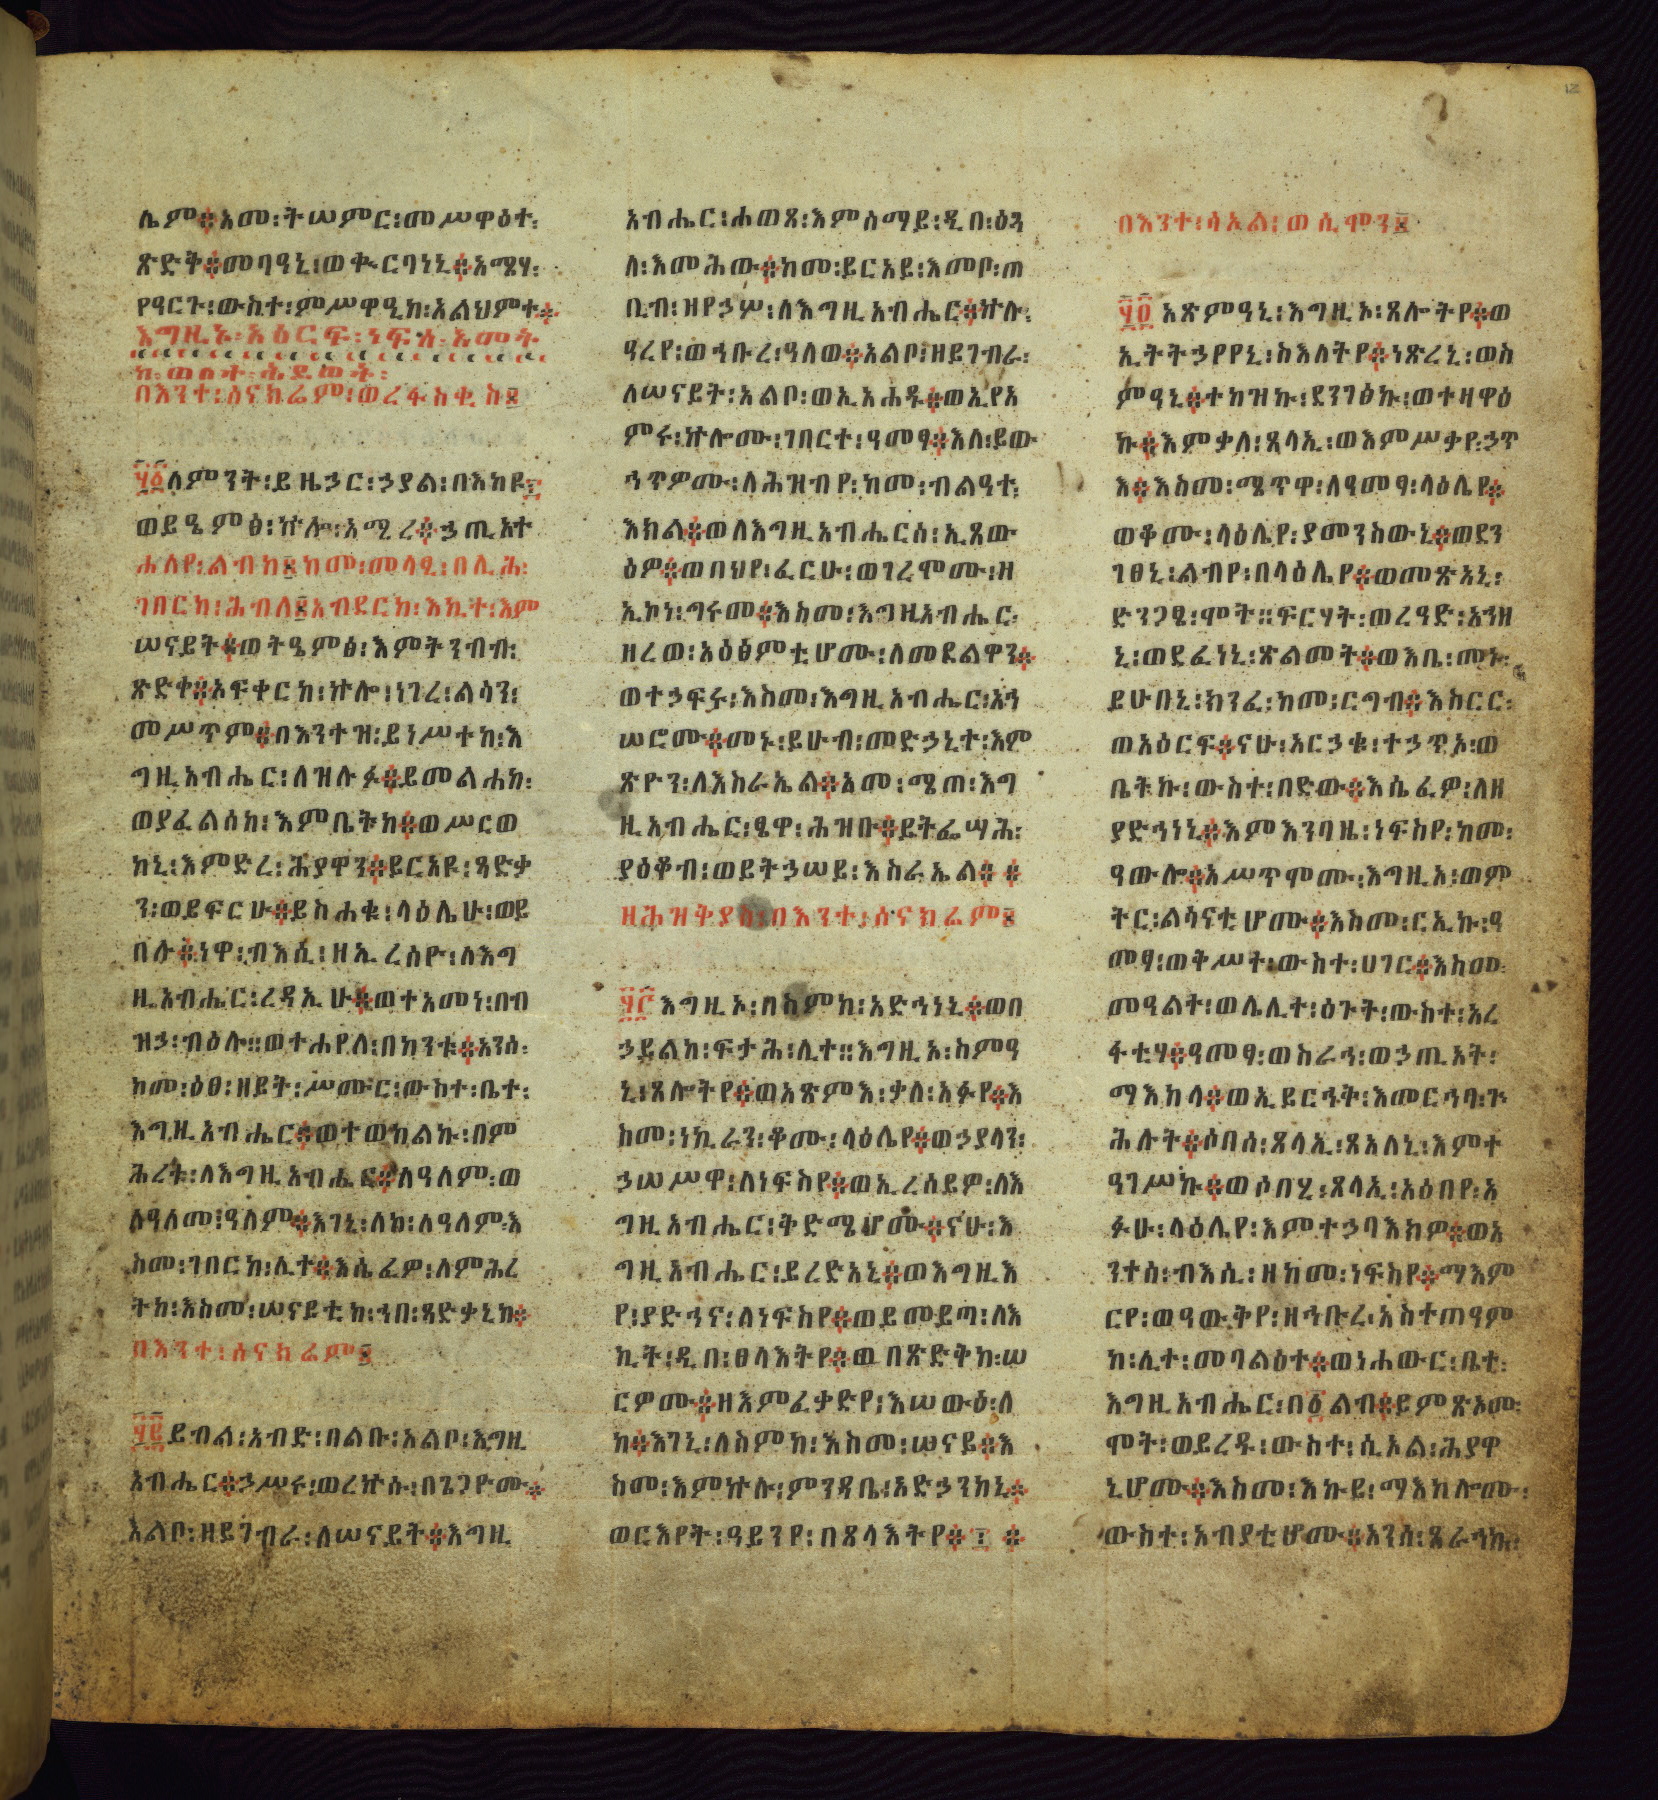 ሌም፨አመ፡ትሠምር፡መሥዋዕተ፡
ጽድቅ፨መባዓኒ፡ወቍርባነኒ፨አሜሃ፡
የዓርጉ፡ውስተ፡ምሥዋዒከ፡አልህምተ፨
እግዚኡ፡አዕርፍ፡ነፍሰ፡አመት
ከ፡ወለተ፡ሕይወት፡
በእንተ፡ሰናክሬም፡ወረፋስቂስ፨
፶፩ለምንት፡ይዜኃር፡ኃያል፡በእከዩ፡
ወይዔምፅ፡ኵሎ፡አሚረ፨ኃጢአተ
ሐለየ፡ልብከ፨ከመ፡መላፂ፡በሊሕ፡
ገበርከ፡ሕብለ፨አብደርከ፡እኪተ፡እም
ሠናይት፨ወትዔምፅ፡እምትንብብ፡
ጽድቀ፨አፍቀርከ፡ኵሎ፡ነገረ፡ልሳን፡
መሥጥም፨በእንተዝ፡ይነሥተከ፡እ
ግዚአብሔር፡ለዝሉፉ፨ይመልሐከ፡
ወያፈልሰከ፡እምቤትከ፨ወሥርወ
ከኒ፡እምድረ፡ሕያዋን፨ይርአዩ፡ጻድቃ
ን፡ወይፍርሁ፨ይስሐቁ፡ላዕሌሁ፡ወይ
በሉ፨ነዋ፡ብእሲ፡ዘኢረሰዮ፡ለእግ
ዚአብሔር፡ረዳኢሁ፨ወተአመነ፡በብ
ዝኃ፡ብዕሉ።ወተሐየለ፡በከንቱ፨አንሰ፡
ከመ፡ዕፀ፡ዘይት፡ሥሙር፡ውስተ፡ቤተ፡
እግዚአብሔር፨ወተወከልኩ፡በም
ሕረቱ፡ለእግዚአብሔር፨ለዓለም፡ወ
ለዓለመ፡ዓለም፨እገኒ፡ለከ፡ለዓለም፡እ
ስመ፡ገበርከ፡ሊተ፨እሴፈዎ፡ለምሕረ
ትከ፡እስመ፡ሠናይቲከ፡ኀበ፡ጻድቃኒከ፨
በእንተ፡ሰናክሬም፨
፶፪ይብል፡አብድ፡በልቡ፡አልቦ፡እግዚ
አብሔር፨ኃሥሩ፡ወረኵሱ፡በጌጋዮሙ፨
አልቦ፡ዘይገብራ፡ለሠናይት፨እግዚ
አብሔር፡ሐወጸ፡እምሰማይ፡ዲበ፡ዕጓ
ለ፡እመሕው፨ከመ፡ይርአይ፡እመቦ፡ጠ
ቢብ፡ዘየኃሥ፡ለእግዚአብሔር፨ኵሉ፡
ዓረየ፡ወኀቡረ፡ዓለወ፨አልቦ፡ዘይገብራ፡
ለሠናይት፡አልቦ፡ወኢአሐዱ፨ወኢየአ
ምሩ፡ኵሎሙ፡ገበርተ፡ዓመፃ፨እለ፡ይው
ኅጥዎሙ፡ለሕዝብየ፡ከመ፡ብልዓተ፡
እክል፨ወለእግዚአብሔርሰ፡ኢጸው
ዕዎ፨ወበህየ፡ፈርሁ፡ወገረሞሙ፡ዘ
ኢኮነ፡ግሩመ፨እስመ፡እግዚአብሔር፡
ዘረወ፡አዕፅምቲሆሙ፡ለመደልዋን፨
ወተኃፍሩ፡እስመ፡እግዚአብሔር፡አኀ
ሠሮሙ፨መኑ፡ይሁብ፡መድኃኒተ፡እም
ጽዮን፡ለእስራኤል፨አመ፡ሜጠ፡እግ
ዚአብሔር፡ፄዋ፡ሕዝቡ፨ይትፌሣሕ፡
ያዕቆብ፡ወይትኃሠይ፡እስራኤል፨፨
ዘሕዝቅያስ፡በእንተ፡ሰናክሬም፨
፶፫እግዚኦ፡በስምከ፡አድኅነኒ፨ወበ
ኃይልከ፡ፍታሕ፡ሊተ።እግዚኦ፡ስምዓ
ኒ፡ጸሎትየ፨ወአጽምእ፡ቃለ፡አፉየ፨እ
ስመ፡ነኪራን፡ቆሙ፡ላዕሌየ፨ወኃያላን፡
ኃሠሥዋ፡ለነፍስየ፨ወኢረሰይዎ፡ለእ
ግዚአብሔር፡ቅድሜሆሙ፨ናሁ፡እ
ግዚአብሔር፡ይረድአኒ፨ወእግዚእ
የ፡ያድኅና፡ለነፍስየ፨ወይመይጣ፡ለእ
ኪት፡ዲበ፡ፀላእትየ፨ወበጽድቅከ፡ሠ
ርዎሙ፨ዘእምፈቃድየ፡እሠውዕ፡ለ
ከ፨እገኒ፡ለስምከ፡እስመ፡ሠናይ፨እ
ስመ፡እምኵሉ፡ምንዳቤ፡አድኃንከኒ፨
ወርእየት፡ዓይንየ፡በጸላእትየ፨፡፨
በእንተ፡ሳኦል፡ወሲሞን፨
፶፬አጽምዓኒ፡እግዚኦ፡ጸሎትየ፨ወ
ኢትትኃየየኒ፡ስእለትየ፨ነጽረኒ፡ወስ
ምዓኒ፨ተከዝኩ፡ደንገፅኩ፡ወተዛዋዕ
ኩ፨እምቃለ፡ጸላኢ፡ወእምሥቃየ፡ኃጥ
እ፨እስመ፡ሜጥዋ፡ለዓመፃ፡ላዕሌየ፨
ወቆሙ፡ላዕሌየ፡ያመንስውኒ፨ወደን
ገፀኒ፡ልብየ፡በላዕሌየ፨ወመጽአኒ፡
ድንጋፄ፡ሞት።ፍርሃት፡ወረዓድ፡አኀዘ
ኒ፡ወደፈነኒ፡ጽልመት፨ወእቤ፡መኑ፡
ይሁበኒ፡ክንፈ፡ከመ፡ርግብ፨እስርር፡
ወአዕርፍ፨ናሁ፡አርኃቁ፡ተኃጥኦ፡ወ
ቤትኩ፡ውስተ፡በድው፨እሴፈዎ፡ለዘ
ያድኅነኒ፨እምእንባዜ፡ነፍስየ፡ከመ፡
ዓውሎ፨አሥጥሞሙ፡እግዚኦ፡ወም
ትር፡ልሳናቲሆሙ፨እስመ፡ርኢኩ፡ዓ
መፃ፡ወቅሥት፡ውስተ፡ሀገር፨እስመ
መዓልተ፡ወሌሊተ፡ዕጉት፡ውስተ፡አረ
ፋቲሃ፨ዓመፃ፡ወስራኀ፡ወኃጢአት፡
ማእከላ፨ወኢይርኅቅ፡እመርኅባ፡ጕ
ሕሉት፨ሶበሰ፡ጸላኢ፡ጸአለኒ፡እምተ
ዓገሥኩ፨ወሶበሂ፡ጸላኢ፡አዕበየ፡አ
ፉሁ፡ላዕሌየ፡እምተኃባእክዎ፨ወአ
ንተሰ፡ብእሲ፡ዘከመ፡ነፍስየ፨ማእም
ርየ፡ወዓውቅየ፡ዘኅቡረ፡አስተጠዓም
ከ፡ሊተ፡መባልዕተ፨ወነሐውር፡ቤተ፡
እግዚአብሔር፡በ፩ልብ፨ይምጽኦሙ፡
ሞት፡ወይረዱ፡ውስተ፡ሲኦል፡ሕያዋ
ኒሆሙ፨እስመ፡እኩይ፡ማእከሎሙ፡
ውስተ፡አብያቲሆሙ፨አንሰ፡ጸራኅኩ፡